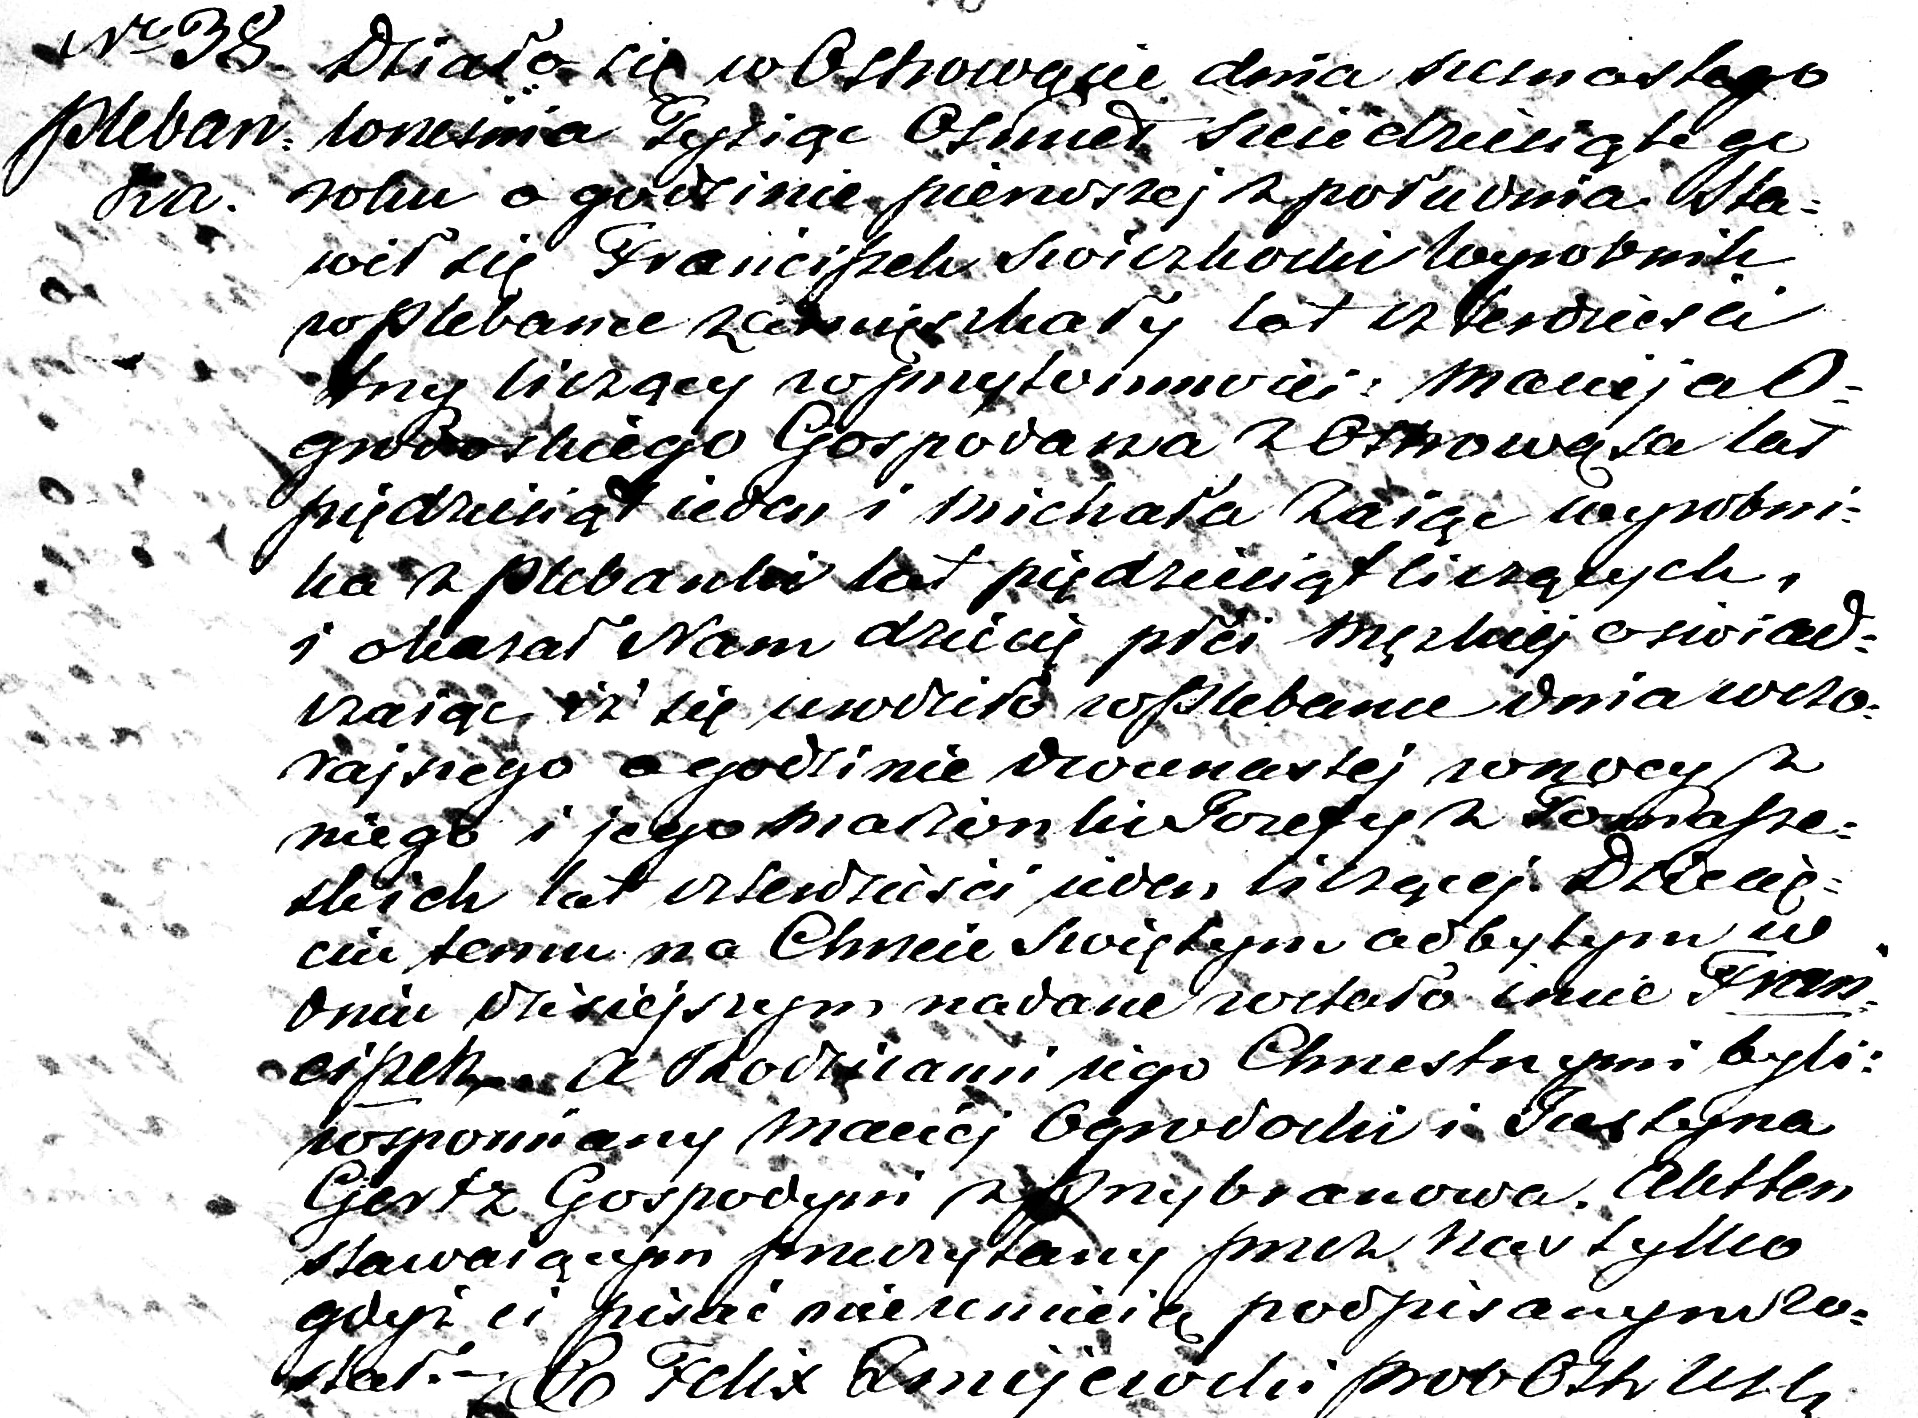 Nro 38. Działo się w Ostrowąsie dnia szesnastego
Pleban= wrzesnia Tysiąc Osmset sześćdziesiątego
ka. roku o godzinie pierwszej z południa. Sta=
wił się Franciszek Swierzkocki Wyrobnik
w Plebance zamięszkały lat czterdzieści
trzy liczący w przytomności: Macieja O=
grodoskiego Gospodarza z Ostrowąsa lat
pięćdziesiąt ieden i Michała Zaiąc wyrobni=
ka z Plebanki lat pięcdziesiąt liczących,
i okazał Nam dziecię płci męzkiej oswiad=
czaiąc, iż się urodziło w Plebance dnia wczo=
rajszego o godzinie dwunastej w nocy z
niego i jego małżonki Jozefy z Tomasze=
skich lat czterdzieści ieden liczącej. Dziecię=
ciu temu na Chrzcie Swiętym odbytym w
dniu dzisiejszym nadane zostało imie Fran=
ciszek. A Rodzicami iego Chrzestnymi byli:
wspomniany Maciej Ogrodocki i Justyna
Gertz Gospodyni z Przybranowa. Akt ten
stawaiącym przeczytany przez Nas tylko
gdyż ci pisać nieumieią podpisanym zo=
stał. X Felix Kmijewocki prob Ostr